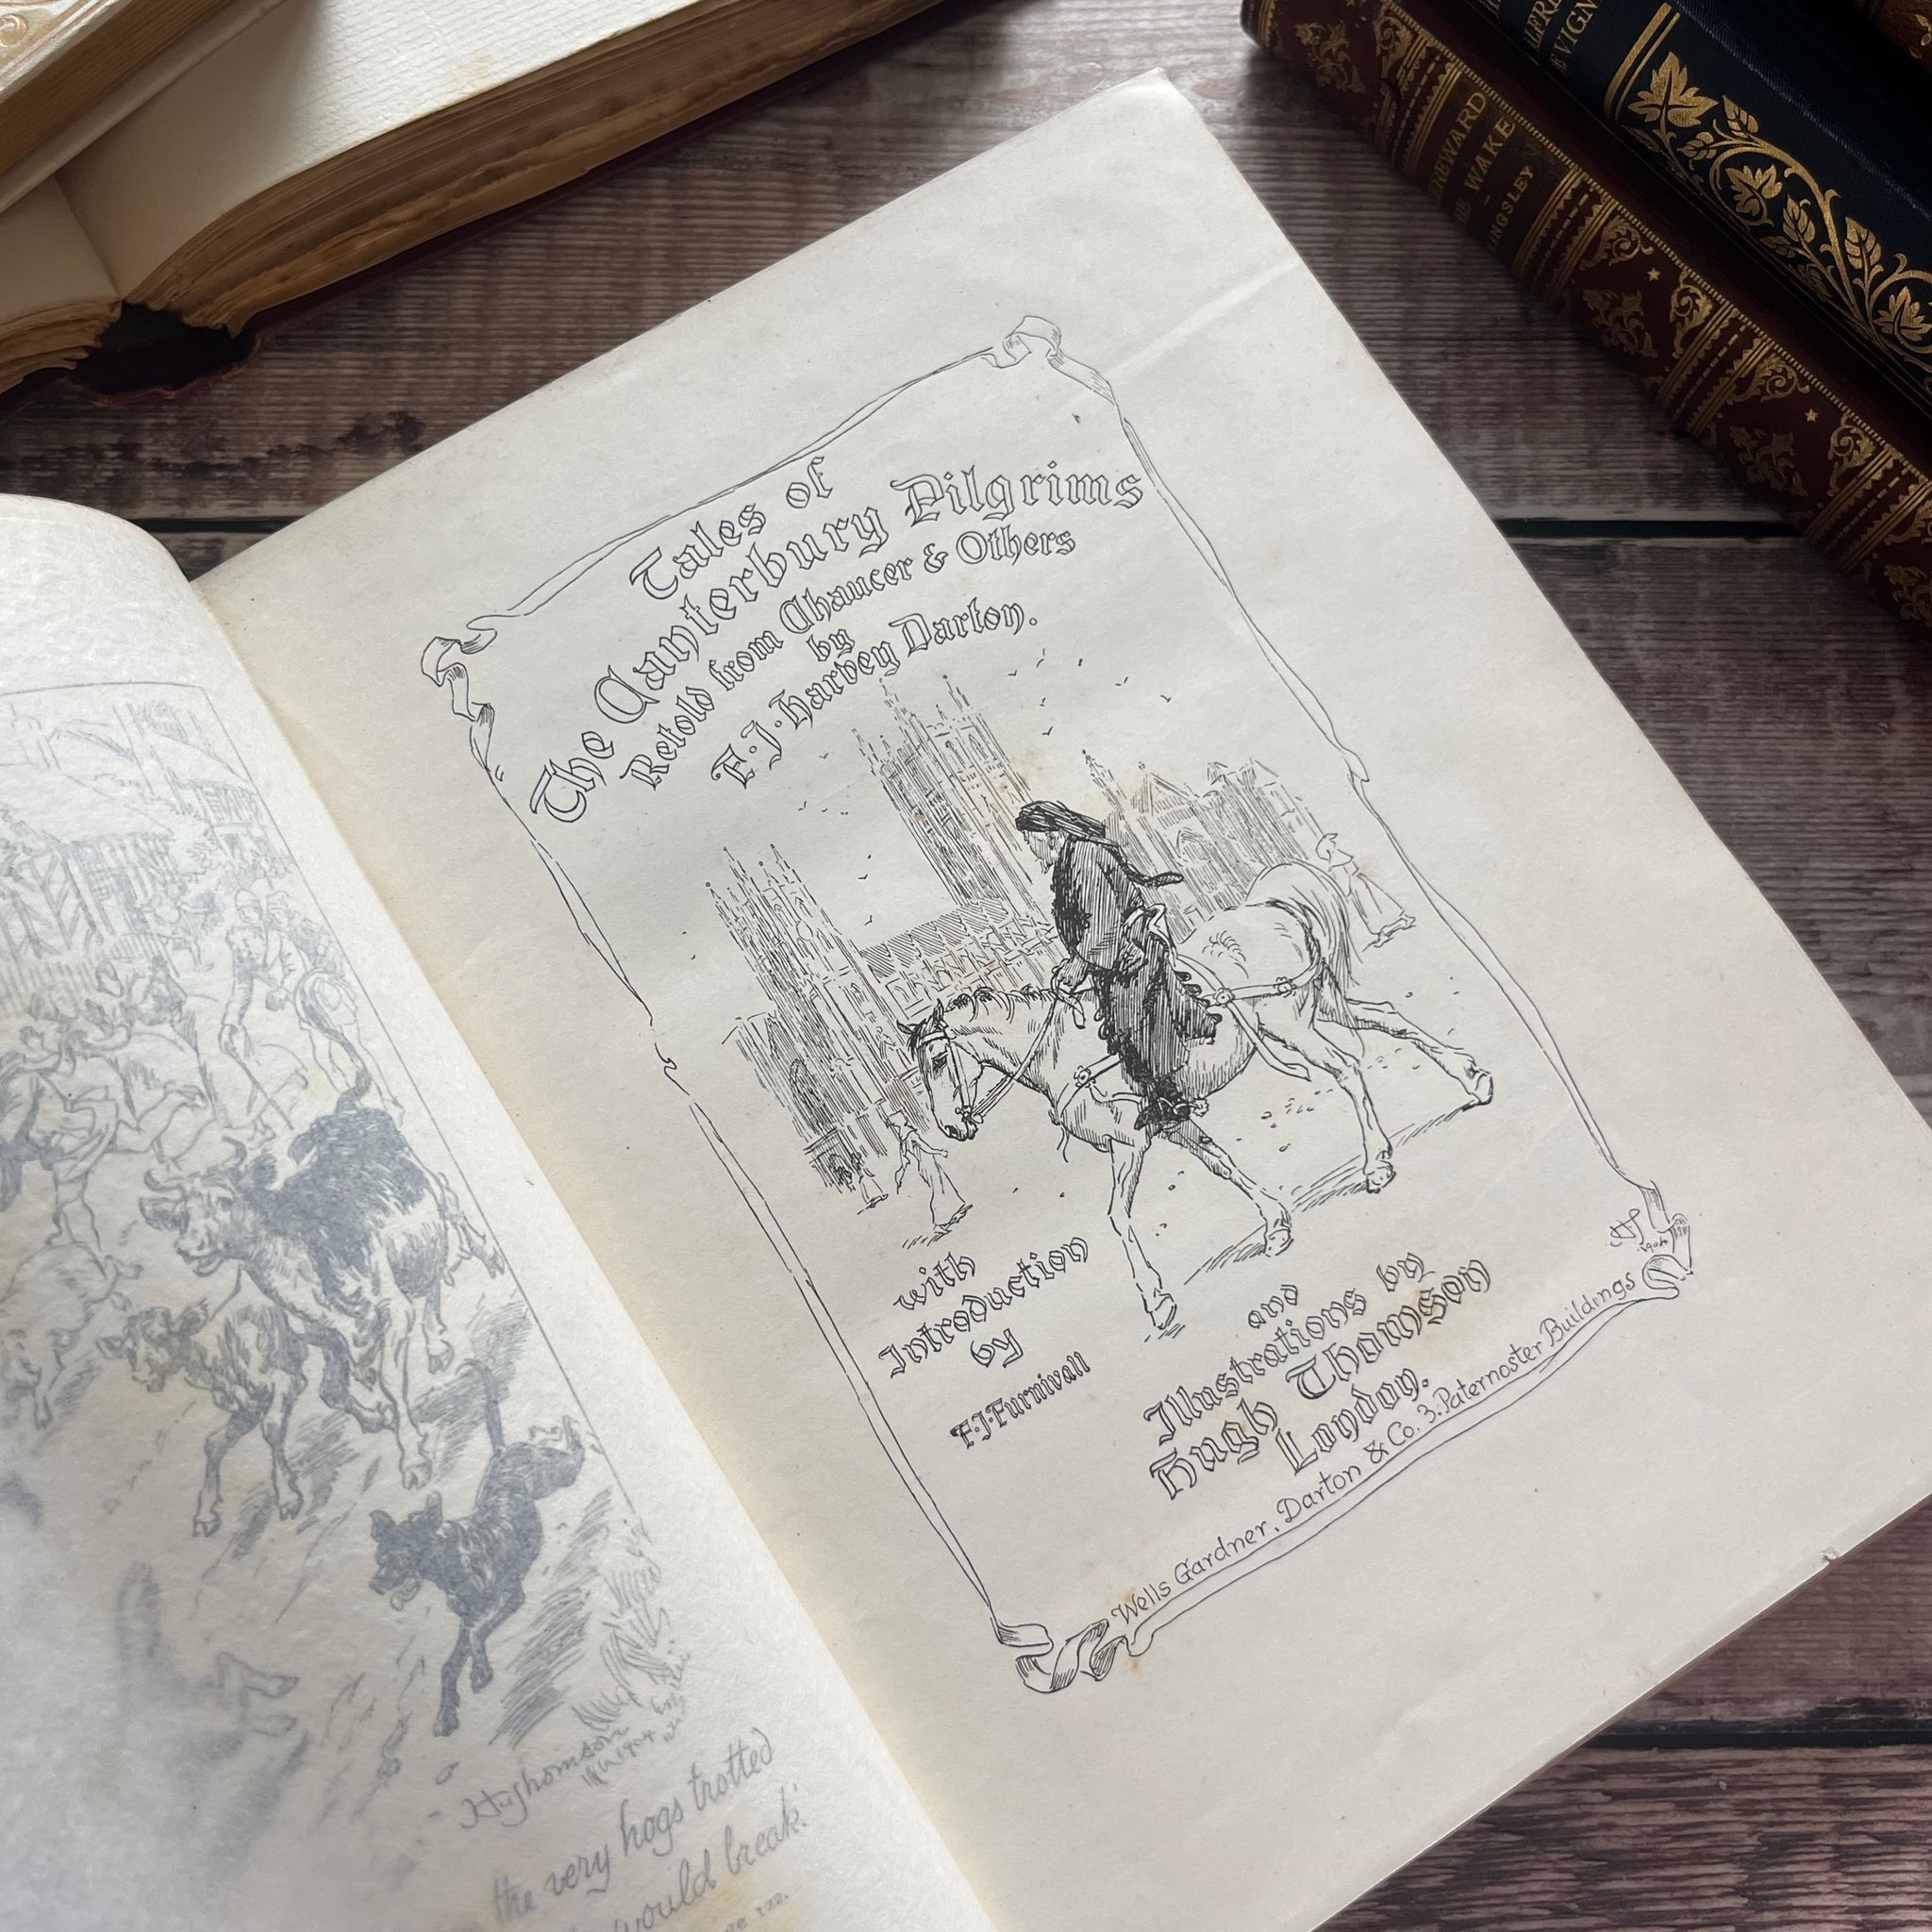 Tales of
The Canterbury Pilgrims
Retold from Chaucer & Others
by
F.J. Harvey Darton.
with
Introduction
by
F.J. Furnivall
and
Illustrations by
Hugh Thomson
London.
Wells Gardner, Darton & Co. 3. Paternoster Buildings
HT
1904
Hugh Thomson
1904
the very hogs trotted
would break.'
122.
EREWARD
WAKE
INGSLEY
VIGN